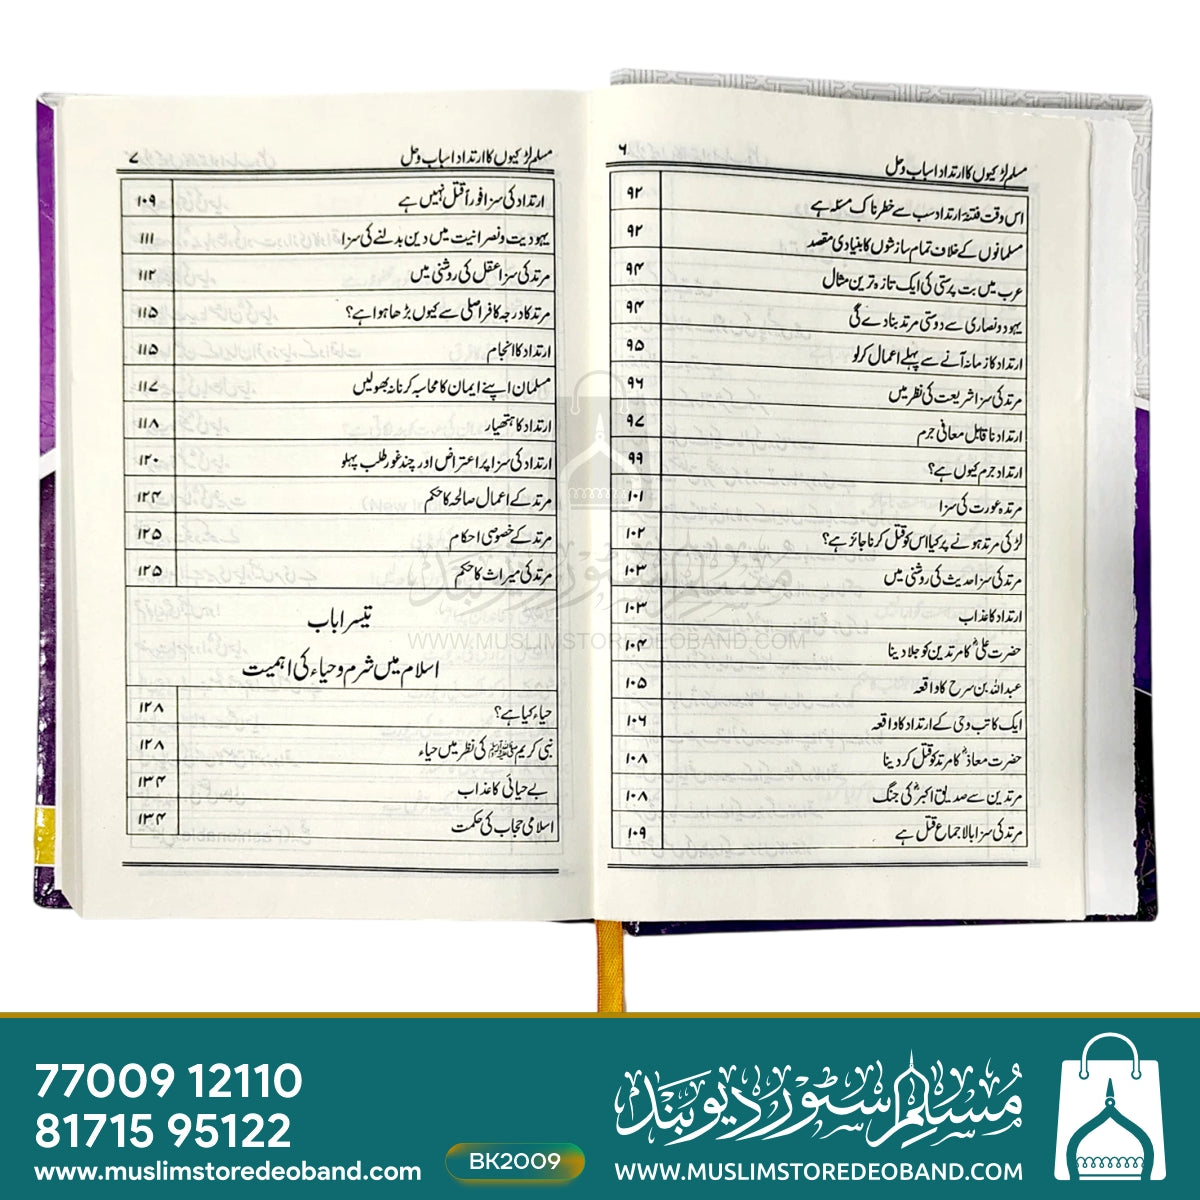 مسلم لڑکیوں کا ارتداد اسباب و حل ۶
اس وقت فتنۂ ارتداد سب سے خطرناک مسئلہ ہے ۹۲
مسلمانوں کے خلاف تمام سازشوں کا بنیادی مقصد ۹۲
عرب میں بت پرستی کی ایک تازہ ترین مثال ۹۴
یہود و نصاریٰ سے دوستی مرتد بنا دے گی ۹۴
ارتداد کا زمانہ آنے سے پہلے اعمال کر لو ۹۵
مرتد کی سزا شریعت کی نظر میں ۹۶
ارتداد ناقابل معافی جرم ۹۷
ارتداد جرم کیوں ہے؟ ۹۹
مرتدہ عورت کی سزا ۱۰۱
لڑکی مرتد ہونے پر کیا اس کو قتل کرنا جائز ہے؟ ۱۰۲
مرتد کی سزا حدیث کی روشنی میں ۱۰۳
ارتداد کا عذاب ۱۰۳
حضرت علیؓ کا مرتدین کو جلا دینا ۱۰۴
عبداللہ بن سرح کا واقعہ ۱۰۵
ایک کاتب وحی کے ارتداد کا واقعہ ۱۰۶
حضرت معاذؓ کا مرتد کو قتل کر دینا ۱۰۸
مرتدین سے صدیق اکبرؓ کی جنگ ۱۰۸
مرتد کی سزا بالاجماع قتل ہے ۱۰۹
مسلم لڑکیوں کا ارتداد اسباب و حل ۷
ارتداد کی سزا فوراً قتل نہیں ہے ۱۰۹
یہودیت و نصرانیت میں دین بدلنے کی سزا ۱۱۱
مرتد کی سزا عقل کی روشنی میں ۱۱۲
مرتد کا درجہ کافر اصلی سے کیوں بڑھا ہوا ہے؟ ۱۱۵
ارتداد کا انجام ۱۱۵
مسلمان اپنے ایمان کا محاسبہ کرنا نہ بھولیں ۱۱۷
ارتداد کا ہتھیار ۱۱۸
ارتداد کی سزا پر اعتراض اور چند غور طلب پہلو ۱۲۰
مرتد کے اعمال صالحہ کا حکم ۱۲۴
مرتد کے خصوصی احکام ۱۲۵
مرتد کی میراث کا حکم ۱۲۵
تیسرا باب
اسلام میں شرم و حیاء کی اہمیت
حیاء کیا ہے؟ ۱۲۸
نبی کریم ﷺ کی نظر میں حیاء ۱۲۸
بے حیائی کا عذاب ۱۳۴
اسلامی حجاب کی حکمت ۱۳۴
مسلم سٹور دیوبند
WWW.MUSLIMSTOREDEOBAND.COM
77009 12110
81715 95122
www.muslimstoredeoband.com
BK2009
مسلم سٹور دیوبند
WWW.MUSLIMSTOREDEOBAND.COM